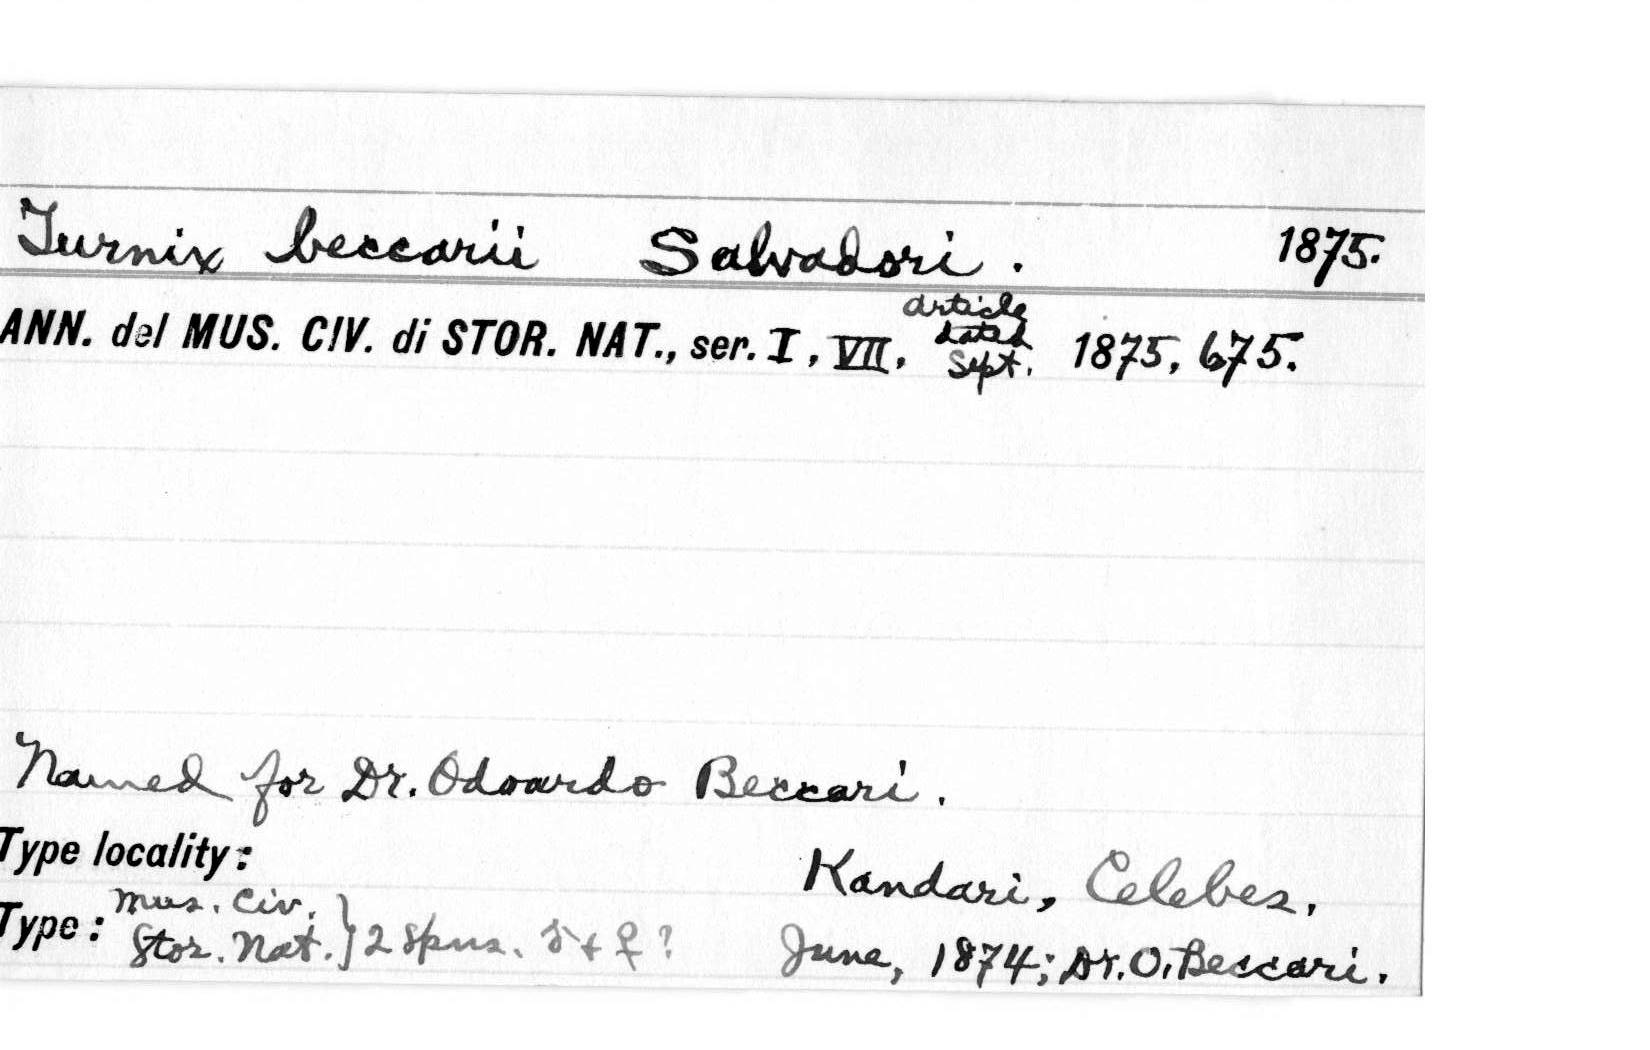 Turnix beccarii Salvadori. 1875.
ANN. del MUS. CIV. di STOR. NAT., ser. I, VII, article dated Sept. 1875, 675.
Named for Dr. Odoardo Beccari.
Type locality: Kandari, Celebes.
Type: Mus. Civ. Stor. Nat. } 2 spns. ♂ + ♀? June, 1874; Dr. O. Beccari.